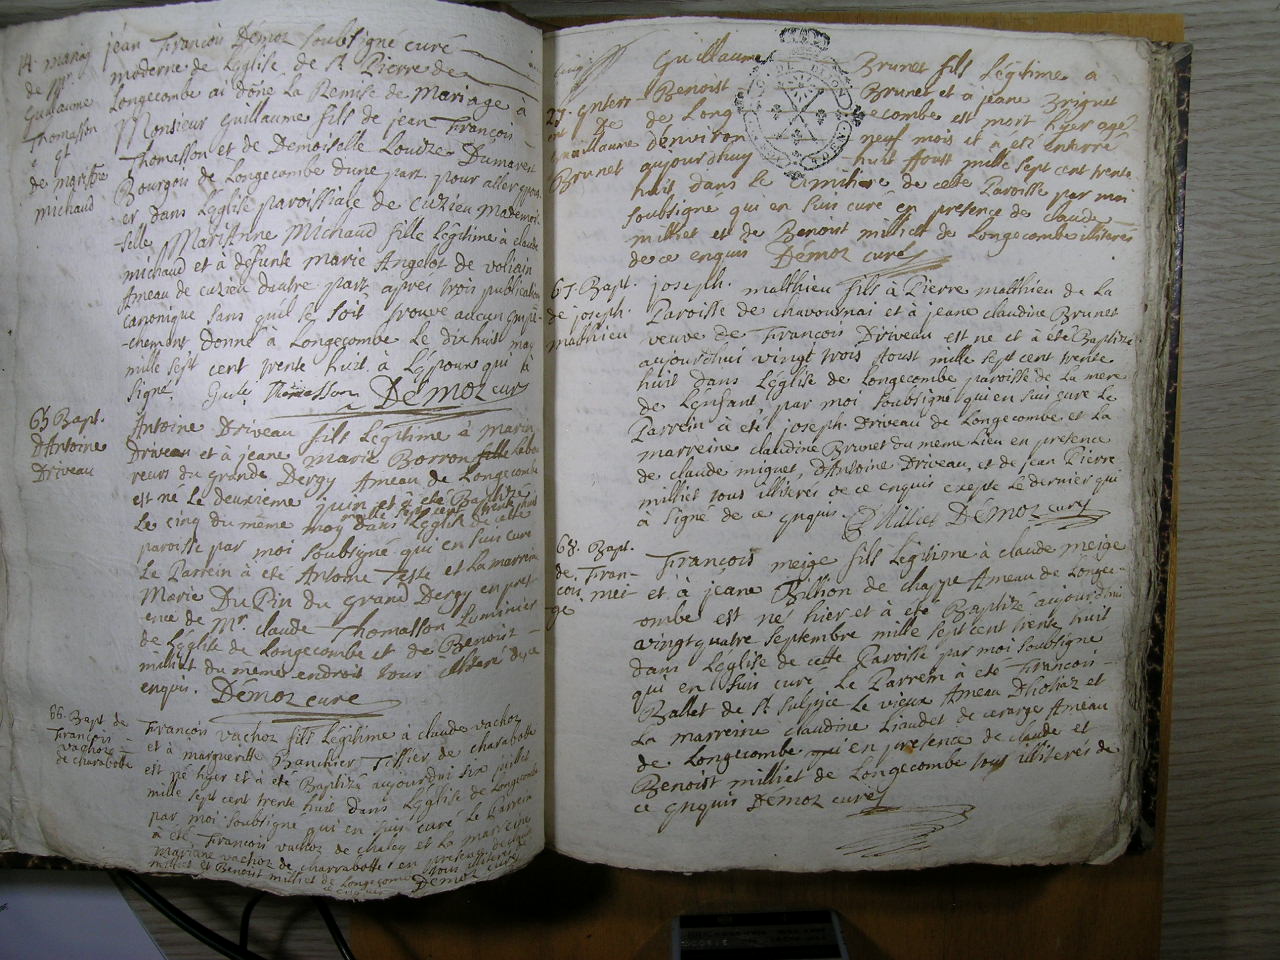 14. mariag
de Mr.
Guillaume
Thomasson
et
de mariAnne
michaud
jean François Démoz soubsigné curé
moderne de Léglise de St. Pierre de
Longecombe ai donné La Remise de Mariage à
Monsieur Guillaume fils de jean François
Thomasson et de Demoiselle Louize Dumarest
Bourgois de Longecombe dune part pour aller épous-
er dans Léglise paroissiale de cuzieu mademoi-
selle MariAnne Michaud fille Légitime à claude
michaud et à defunte marie Angelot de
Ameau de cuzieu dautre part apres trois publication
canonique sans quil se soit trouvé aucun empê-
chement donné à Longecombe Le dix huit may
mille sept cent trente huit. à Lépoux qui a
signé. Thomasson Démoz curé
65 Bapt.
D'Antoine
Driveau
Antoine Driveau fils Légitime à Marin
Driveau et à jeane Marie Borron Labou
reurs du grande Dergy Ameau de Longecombe
est né Le deuxieme juin et à été Baptizé
Le cinq du même moy mille sept cent trente huit dans Léglise de cette
paroisse par moi soubsigné qui en suis curé
Le Parrein à été Antoine Teste et La marreine
Marie DuPin du grand Dergy en pres-
ence de Mr. claude Thomasson Luminier
de Léglise de Longecombe et de Benoist
milliet du même endroit tous illiteré de ce
enquis. Démoz curé
66. Bapt. de
François
vachoz
de charabotte
François vachoz fils Légitime à claude vachoz
et à margueritte Banchier Tissier de charabotte
est né hyer et à été Baptizé aujourdui six juillet
mille sept cent trente huit dans Léglise de Longecombe
par moi soubsigné qui en suis curé Le Parrein
à été François vachoz de chaley et La marreine
Mariane vachoz de charrabotte en presence de claude
milliet et Benoist milliet de Longecombe tous illiteré
ce enquis Démoz curé
27. enterr-
ment de
Guillaume
Brunet
Guillaume Brunet fils Légitime a
Benoist Brunet et à jeane Brignet
de Longecombe est mort hyer agé
denviron neuf mois et à été enterré
aujourdhuy huit Aoust mille sept cent trente
huit dans le cimitière de cette Paroisse par moi
soubsigné qui en suis curé en presence de claude
milliet et de Benoist milliet de Longecombe illiterés
de ce enquis Démoz curé
67. Bapt.
de joseph
matthieu
joseph matthieu fils à Pierre matthieu de La
Paroisse de chavournai et à jeane claudine Brunet
veuve de François Driveau est né et à été Baptizé
aujourdhui vingt trois Aoust mille sept cent trente
huit dans Léglise de Longecombe paroisse de La mere
de Lenfant, par moi soubsigné qui en suis curé Le
Parrein à été joseph Driveau de Longecombe et La
marreine claudine Brunet du meme Lieu en presence
de claude miguet, d'Antoine Driveau, et de jean Pierre
milliet tous illiterés de ce enquis exepté Le dernier qui
à signé de ce enquis. Milliet Démoz curé
68. Bapt.
de Fran-
cois mei-
ge
François meige fils Légitime à claude meige
et à jeane Billion de chappe Ameau de Longec-
ombe est né hier et à été Baptizé aujourdhui
vingt quatre septembre mille sept cent trente huit
dans Léglise de cette Paroisse par moi soubsigné
qui en suis curé Le Parrein à été François
Ballet de St. Sulpice Le vieux Ameau Dhostiaz et
La marreine claudine Liaudet de cerarge Ameau
de Longecombe en presence de claude et
Benoist milliet de Longecombe tous illiterés de
ce enquis Démoz curé